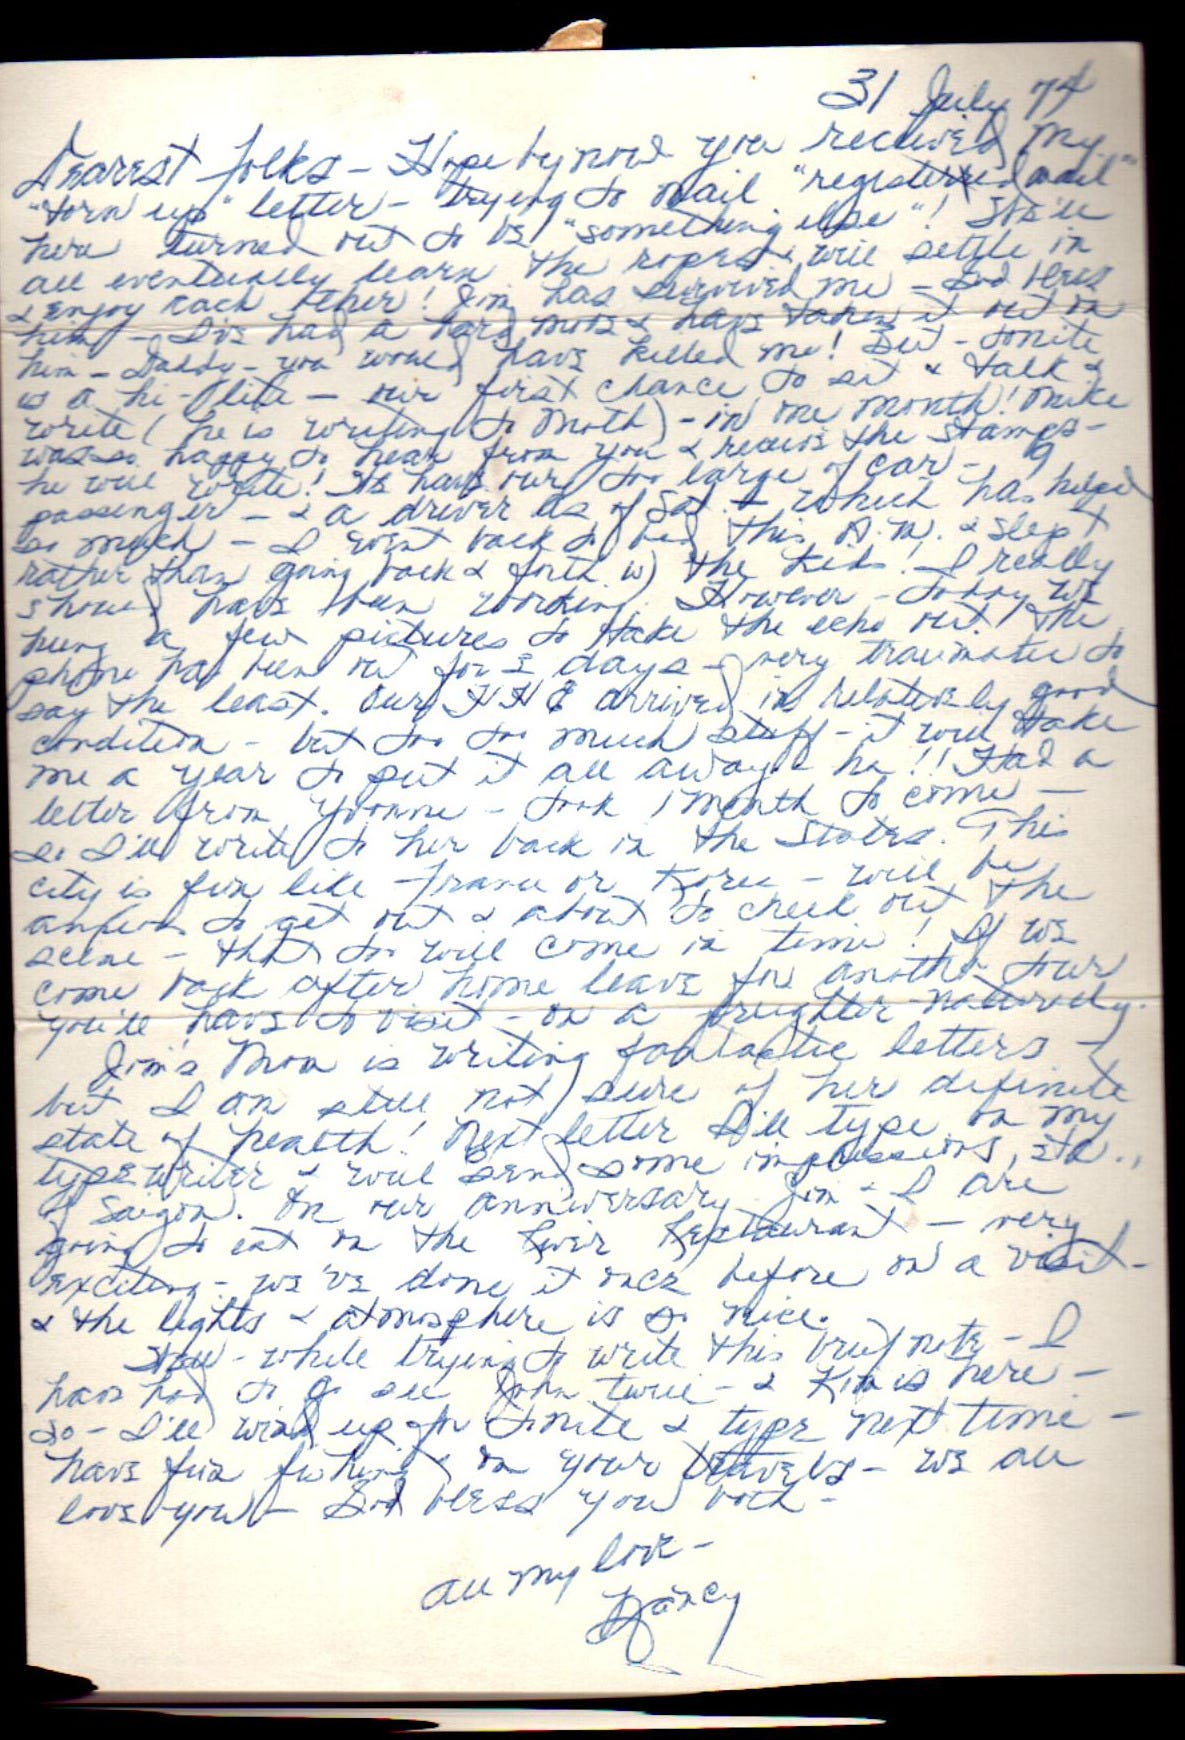 31 July 74
Dearest folks - Hope by now you received my
"torn up" letter - trying to mail "registered mail"
here turned out to be "something else"! We'll
all eventually learn the ropes & will settle in
& enjoy each other! Jim has survived me - God bless
him - I've had a hard mos & have taken it out on
him - Daddy - you would have killed me! But - tonite
is a hi-lite - our first chance to sit & talk &
write (he is writing to Moth) - in one month! Mike
was so happy to hear from you & receive the stamps -
he will write! We have our too large of car - 9
passenger - & a driver as of Sat. & which has helped
so much - I went back to bed this A.M. & slept
rather than going back & forth w) the kids! I really
should have been working. However - today we
hung a few pictures to take the echo out! The
phone has been out for 5 days - very traumatic to
say the least. Our HHE arrived in relatively good
condition - but too too much stuff - it will take
me a year to put it all away & ha!! Had a
letter from Yvonne - took 1 month to come -
so I'll write to her back in the States. This
city is fun like France or Korea - will be
anxious to get out & about to check out the
scene - that too will come in time! If we
come back after home leave for another tour
you'll have to visit - on a freighter naturally.
Jim's Mom is writing fantastic letters -
but I am still not sure of her definite
state of health! Next letter I'll type on my
typewriter & will send some impressions, etc.,
of Saigon. On our anniversary Jim & I are
going to eat on the River Restaurant - very
exciting - we've done it once before on a visit -
& the lights & atmosphere is so nice.
Well - while trying to write this brief note - I
have had to go see John twice - & Kim is here -
so - I'll wind up for tonite & type next time -
have fun fishing & on your travels - we all
love you - God bless you both -
all my love -
Nancy